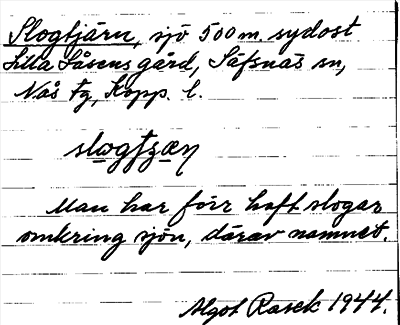 Slogtjärn, sjö 500 m sydost
Lilla Låsens gård, Säfsnäs sn,
Nås tg, Kopp. l.
slogtʒæɳ
Man har förr haft slogar
omkring sjön, därav namnet.
Algot Rasck 1944.